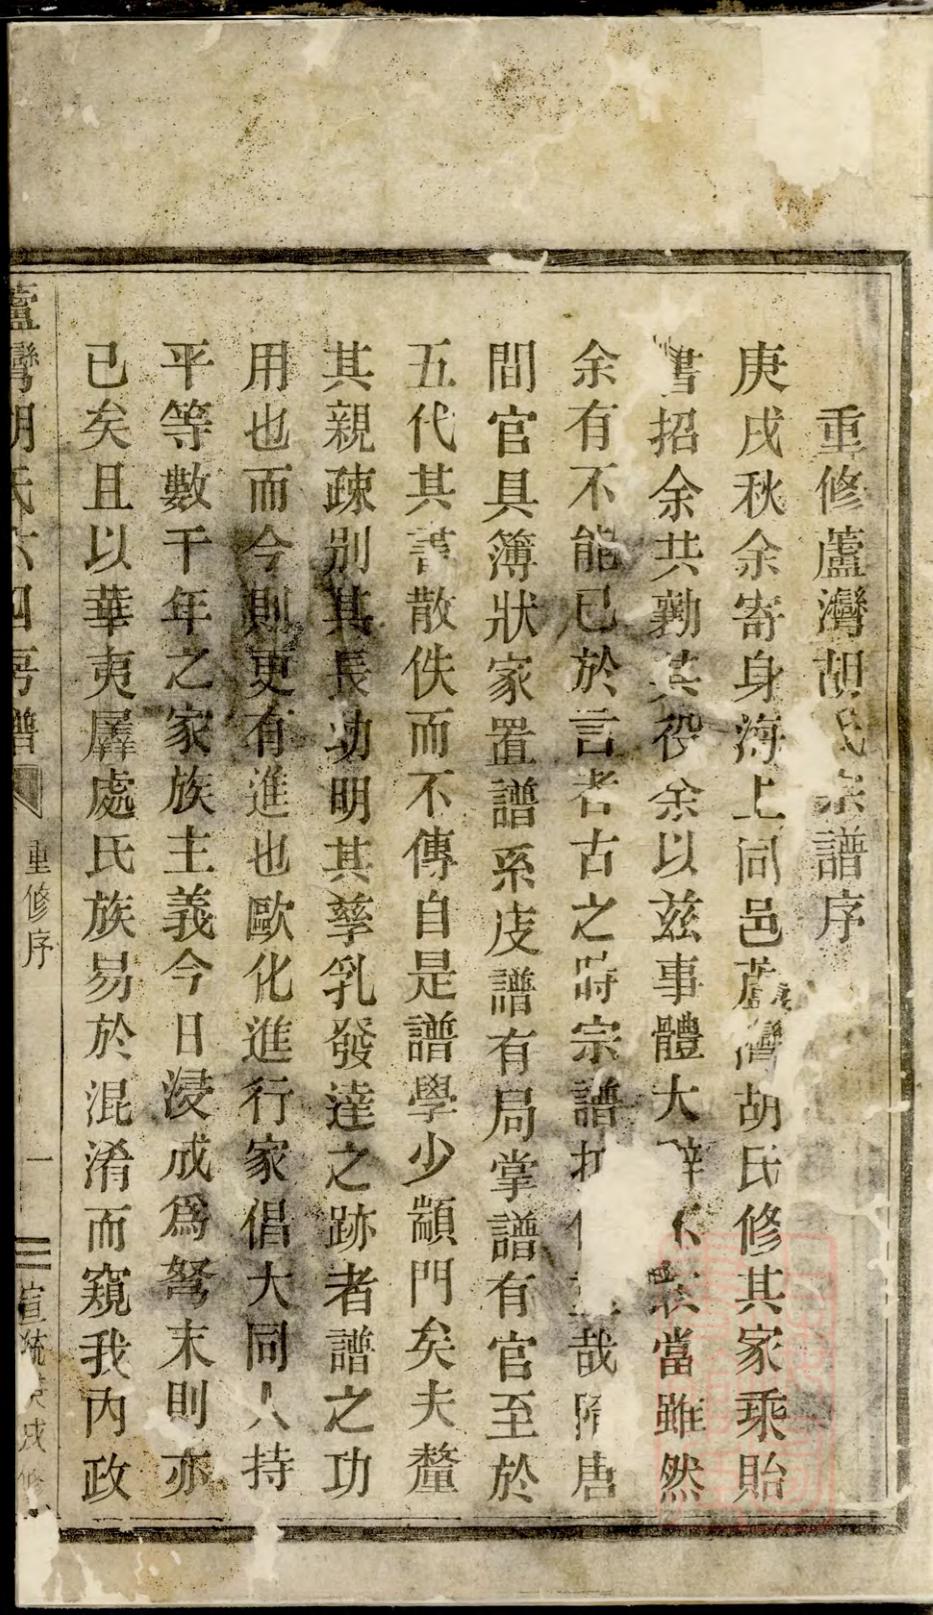 重修蘆灣胡氏宗譜序
庚戌秋余寄身海上同邑蘆灣胡氏修其家乘貽
書招余共勷其役余以兹事體大辭不敢當雖然
余有不能已於言者古之時宗譜哉隋唐
間官具簿狀家置譜系庋譜有局掌譜有官至於
五代其書散佚而不傳自是譜學少顓門矣夫釐
其親疎别其長幼明其孳乳發達之跡者譜之功
用也而今則更有進也歐化進行家倡大同人持
平等數千年之家族主義今日浸成爲弩末則亦
已矣且以華夷羼處氏族易於混淆而窺我内政
蘆灣胡氏六四房譜
重修序
一
宣統庚戌修